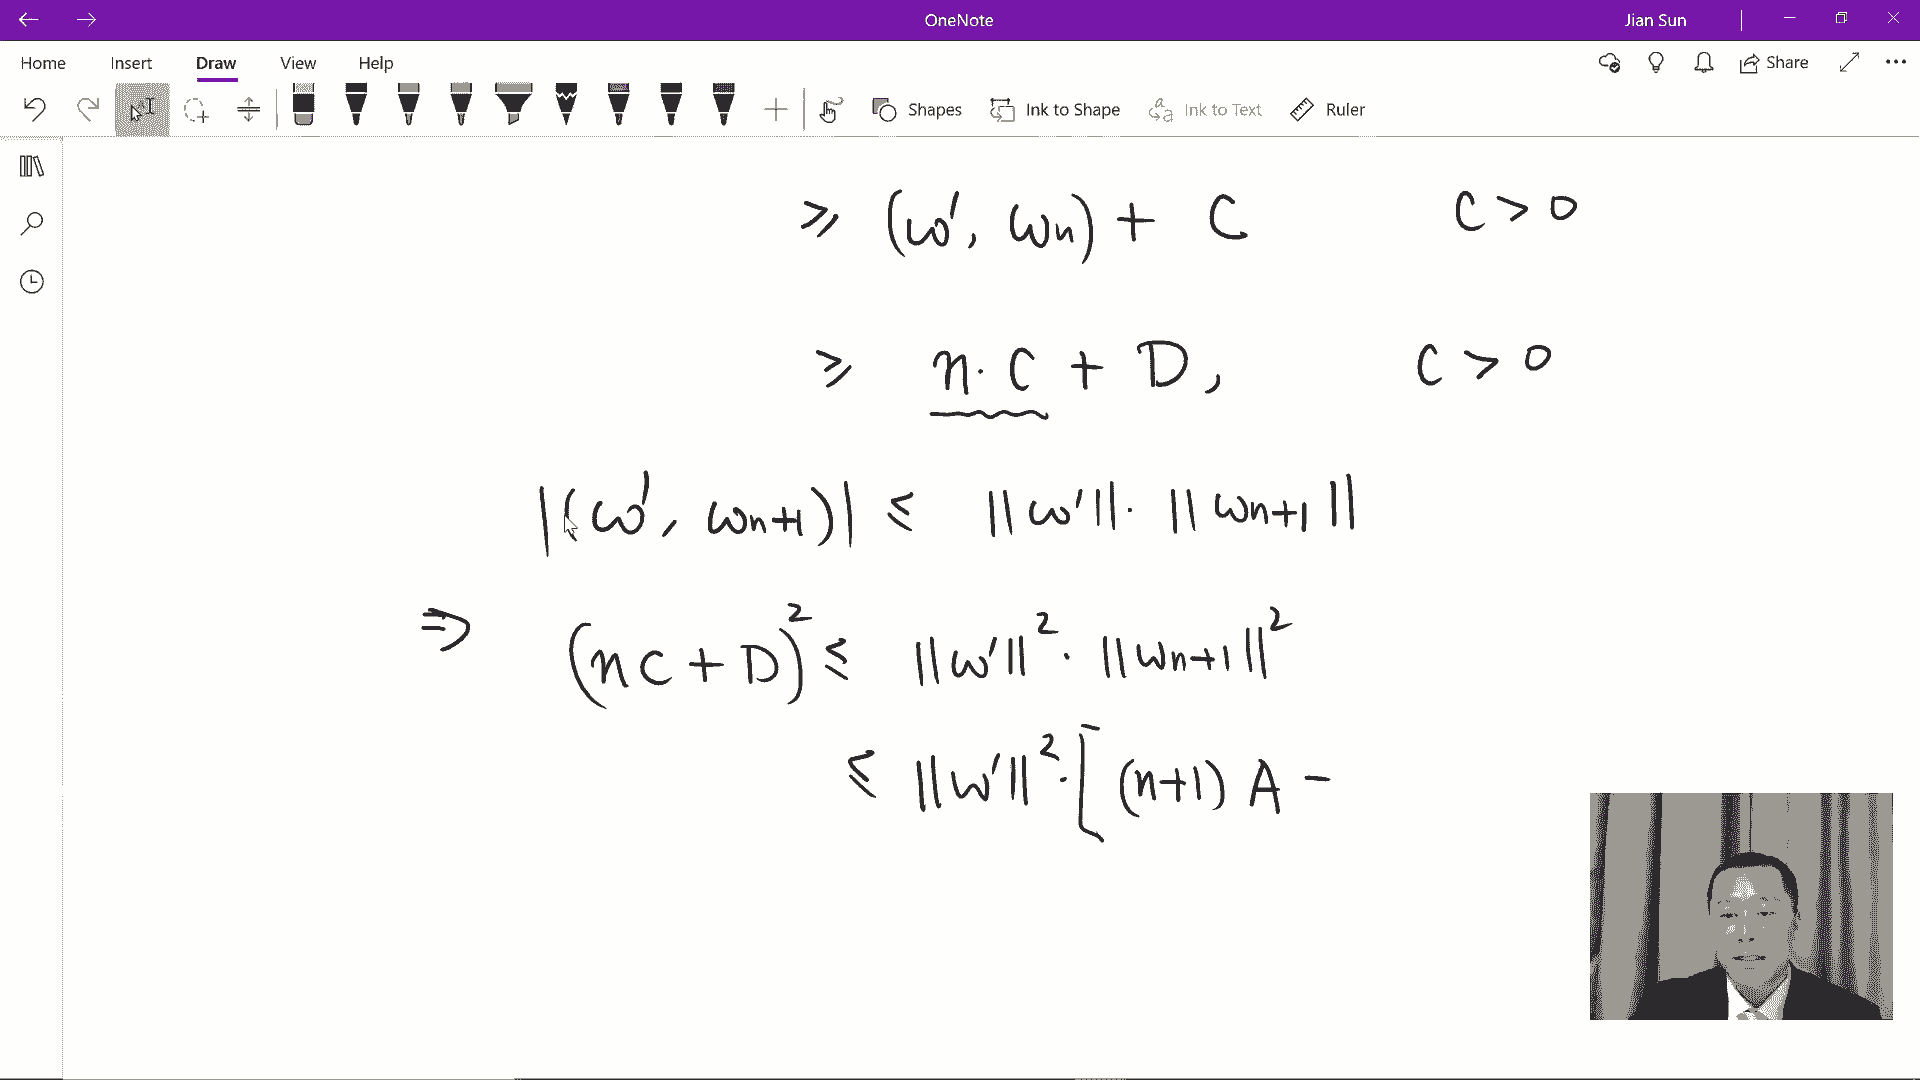 OneNote
Jian Sun
Home Insert Draw View Help
Share
Shapes Ink to Shape Ink to Text Ruler
≥ (ω', ωn) + C C > 0
≥ n · C + D, C > 0
|(ω', ωn+1)| ≤ ||ω'|| · ||ωn+1||
⇒ (nC + D)² ≤ ||ω'||² · ||ωn+1||²
≤ ||ω'||² · [ (n+1) A -